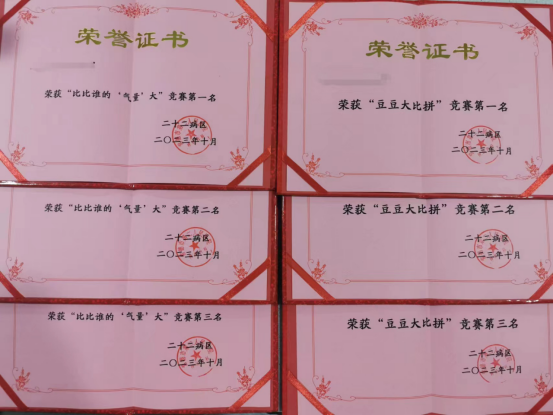 荣誉证书
荣获“比比谁的‘气量’大”竞赛第一名
二十二病区
二〇二三年十月
荣誉证书
荣获“豆豆大比拼”竞赛第一名
二十二病区
二〇二三年十月
荣获“比比谁的‘气量’大”竞赛第二名
二十二病区
二〇二三年十月
荣获“豆豆大比拼”竞赛第二名
二十二病区
二〇二三年十月
荣获“比比谁的‘气量’大”竞赛第三名
二十二病区
二〇二三年十月
荣获“豆豆大比拼”竞赛第三名
二十二病区
二〇二三年十月